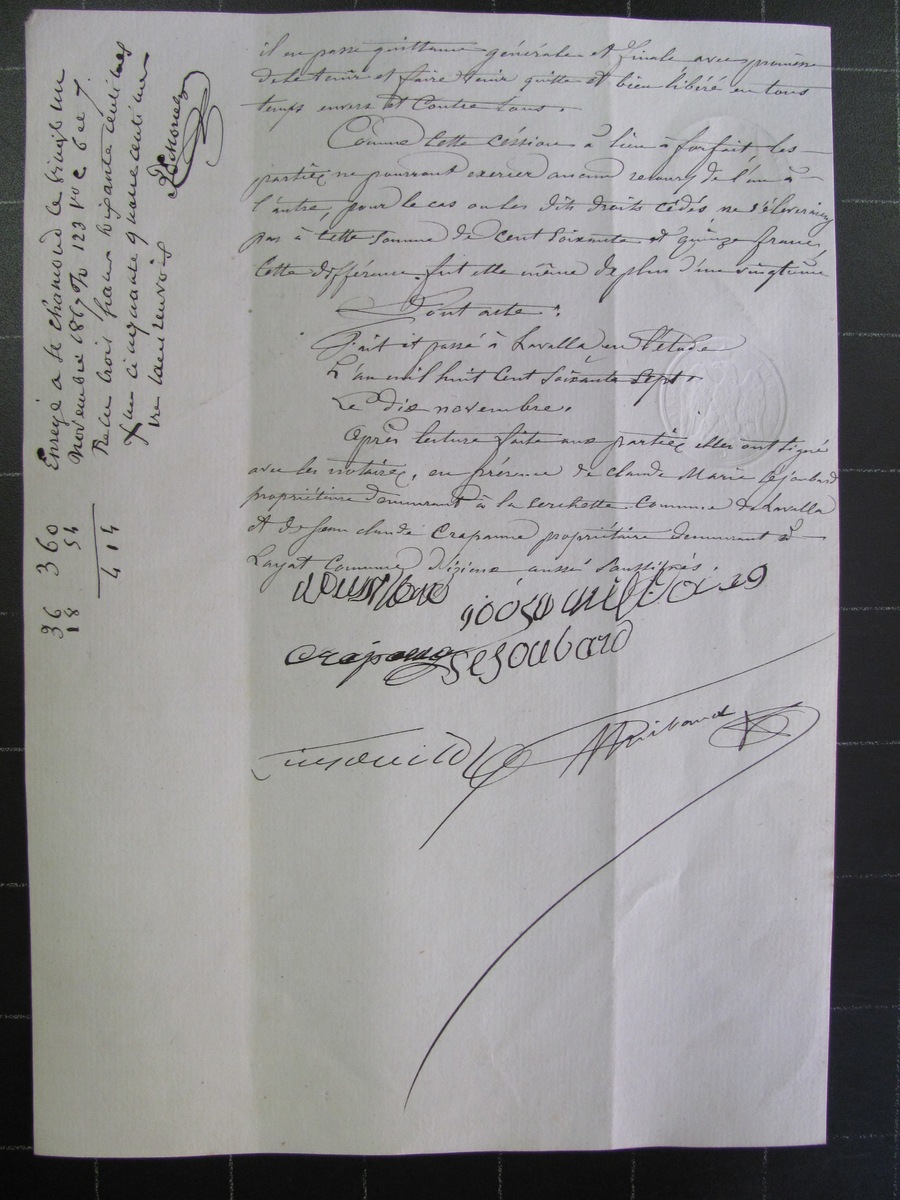 il en passe quittance générale et finale avec promesse
de le tenir et faire tenir quitte et bien libéré en tous
temps envers et contre tous.
Comme cette céssion a lieu à forfait les
parties ne pourront exercer aucun recours de l'un à
l'autre, pour le cas ou les dits droits cédés ne s'éleveraient
pas à cette somme de cent soixante et quinze francs
cette différence fut elle même de plus d'un vingtième
Dont acte :
Fait et passé à Lavalla en l'étude
L'an mil huit cent soixante sept.
Le dix novembre.
Après lecture faite aux parties elles ont signé
avec les notaires, en présence de claude Marie Séjoubard
propriétaire demeurant à la Serchette Commune de Lavalla
et de Jean claude Crapanne propriétaire demeurant à
Layat Commune d'izieux aussi soussignés.
crapanne Sejoubard
Enregé à St Chamond le vingt un
novembre 1867 fo 123 vo c 6 et 7
Reçu trois francs soixante centimes
cinquante quatre centimes
renvois
36 3 60
18 54
4 14